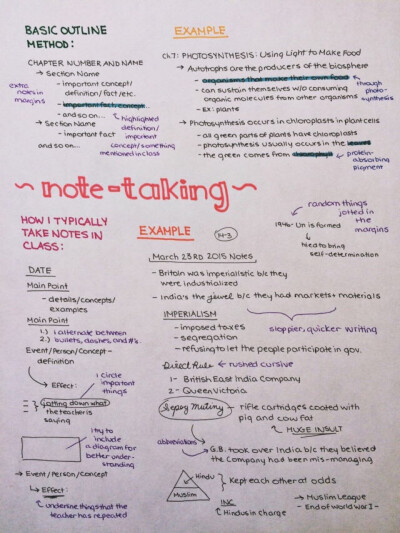 BASIC OUTLINE
METHOD:
CHAPTER NUMBER AND NAME
→ Section Name
- important concept/
definition/fact/etc.
- important fact, concept...
- and so on...
→ Section Name
- important fact
and so on...
extra
notes in
margins
highlighted
definition/
important
concept/something
mentioned in class
EXAMPLE
Ch.7: PHOTOSYNTHESIS: Using Light to Make Food
→ Autotrophs are the producers of the biosphere
- organisms that make their own food
- can sustain themselves w/o consuming
organic molecules from other organisms
- Ex: plants
through
photo-
synthesis
→ Photosynthesis occurs in chloroplasts in plant cells
- all green parts of plants have chloroplasts
- photosynthesis usually occurs in the leaves
- the green comes from chlorophyll
protein-
absorbing
pigment
~ note-taking ~
HOW I TYPICALLY
TAKE NOTES IN
CLASS:
DATE
Main Point
- details/concepts/
examples
Main Point
1.) I alternate between
2.) bullets, dashes, and #'s.
Event/Person/Concept -
definition
→ Effect:
I circle
important
things
Jotting down what
the teacher is
saying
I try to
include
a diagram for
better under-
standing
→ Event/Person/Concept
↳ Effect:
underline things that the
teacher has repeated
EXAMPLE
random things
jotted in
the
margins
1946- Un is formed
tried to bring
self-determination
March 23RD 2015 Notes
- Britain was imperialistic b/c they
were industrialized
- India's the jewel b/c they had markets + materials
IMPERIALISM
- imposed taxes
- segregation
- refusing to let the people participate in gov.
sloppier, quicker writing
Direct Rule
rushed cursive
1- British East India Company
2- Queen Victoria
Sepoy Mutiny - rifle cartridges coated with
pig and cow fat
↳ HUGE INSULT
abbreviations
G.B. took over India b/c they believed
the Company had been mis-managing
Hindu
Muslim
Kept each other at odds
INC
↳ Hindus in charge
→ Muslim League
- End of world war I -